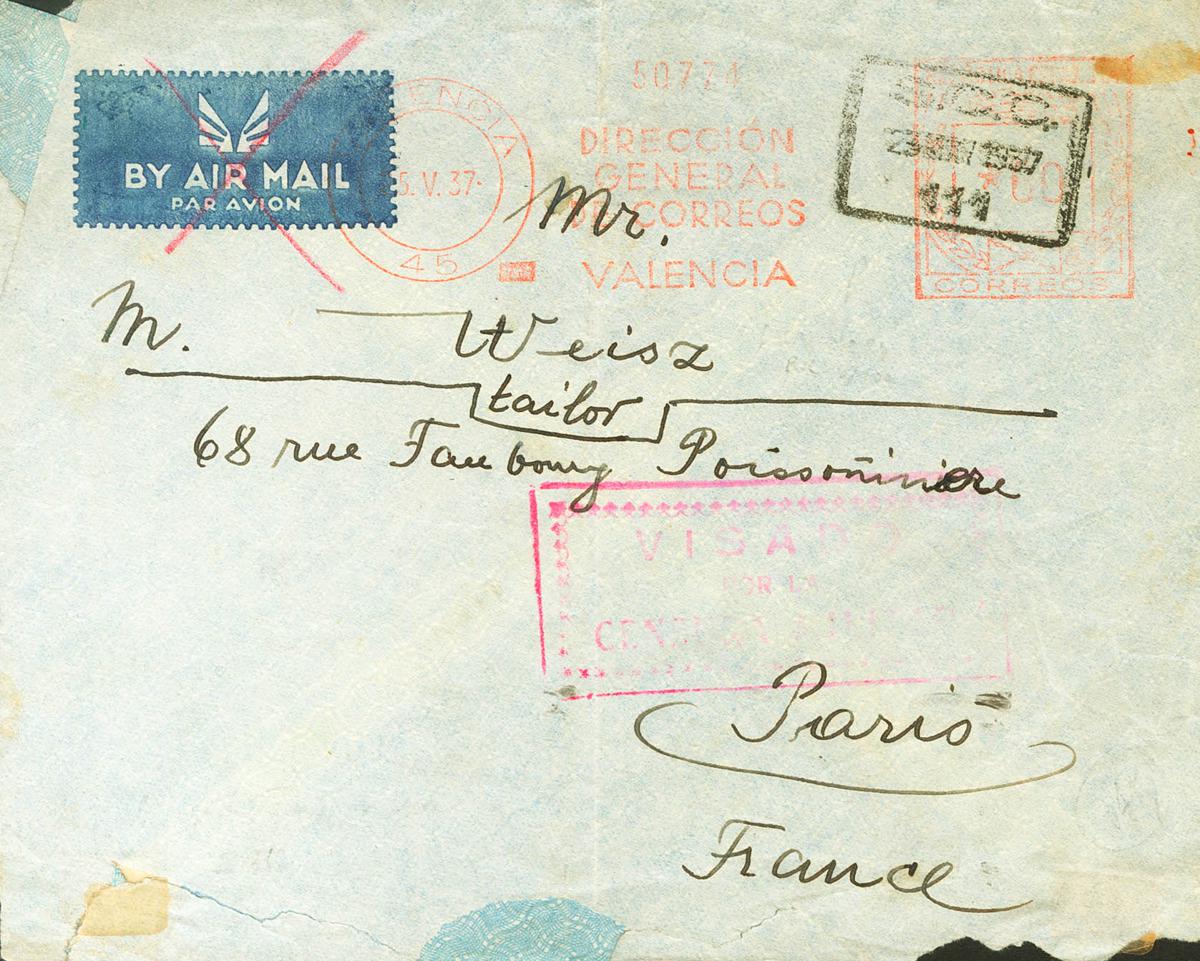 50774
BY AIR MAIL
PAR AVION
5.V.37
45
DIRECCIÓN
GENERAL
DE CORREOS
VALENCIA
S.C.C.
1937
111
CORREOS
Mr.
M. Weisz
tailor
68 rue Faubourg Poissoñiniere
VISADO
POR LA
CENSURA
Paris
France